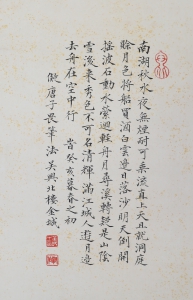 南湖秋水夜無煙耐可乘流直上天且就洞庭
賒月色將船買酒白雲邊日落沙明天倒開
搖波石動水縈迴輕舟月尋溪轉疑是山陰
雪後來秀色不可名清輝滿江城人遊月邊
去舟在空中行 旹癸亥暮春之初
儗唐子畏筆法吳興北樓金城